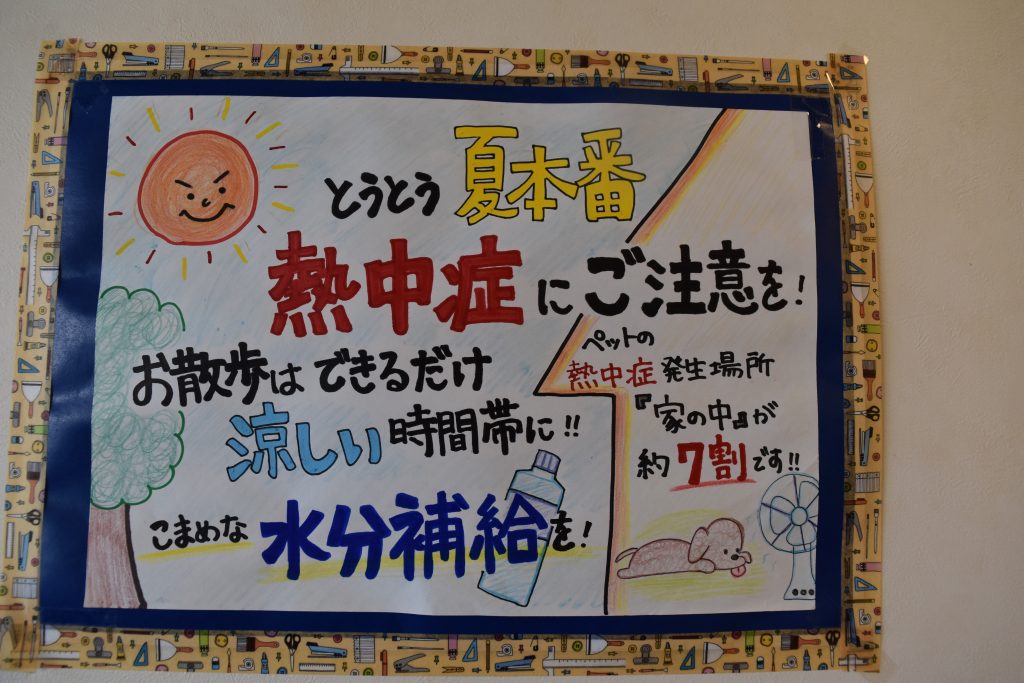 とうとう夏本番
熱中症にご注意を!
お散歩はできるだけ
涼しい時間帯に!!
こまめな水分補給を!
ペットの
熱中症発生場所
『家の中』が
約7割です!!